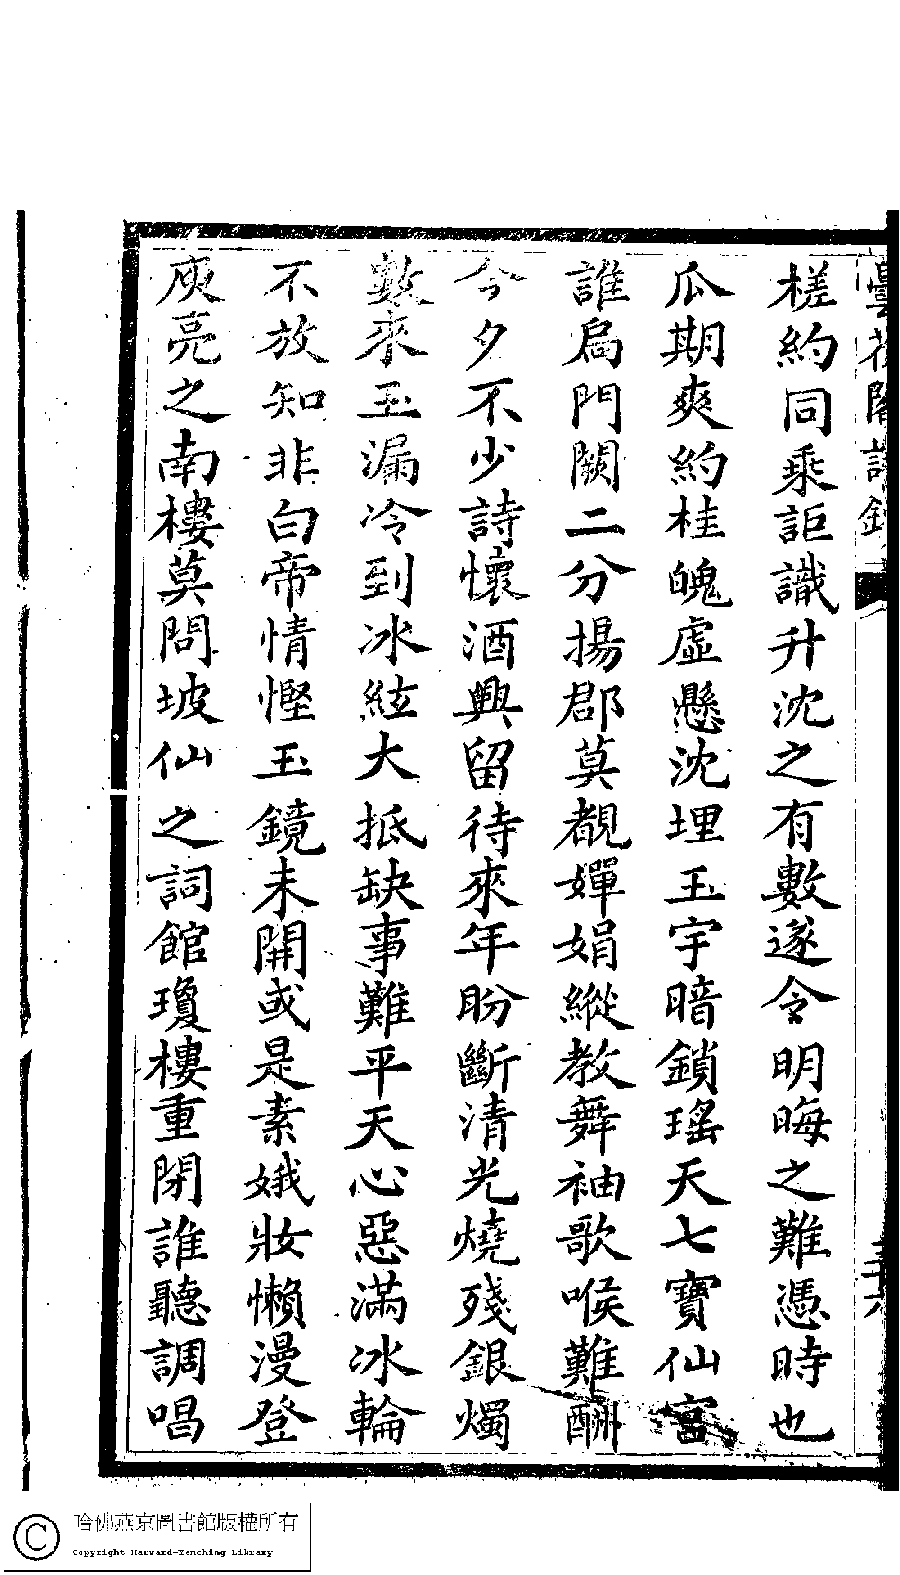 槎約同乘詎識升沈之有數遂令明晦之難憑時也
瓜期爽約桂魄虛懸沈埋玉宇暗鎖瑤天七寶仙宮
誰扃門闕二分揚郡莫覩嬋娟縱教舞袖歌喉難酬
今夕不少詩懷酒興留待來年盼斷清光燒殘銀燭
數來玉漏冷到冰絃大抵缺事難平天心惡滿冰輪
不放知非白帝情慳玉鏡未開或是素娥妝懶漫登
庾亮之南樓莫問坡仙之詞館瓊樓重閉誰聽調唱
哈佛燕京圖書館版權所有
Copyright Harvard-Yenching Library